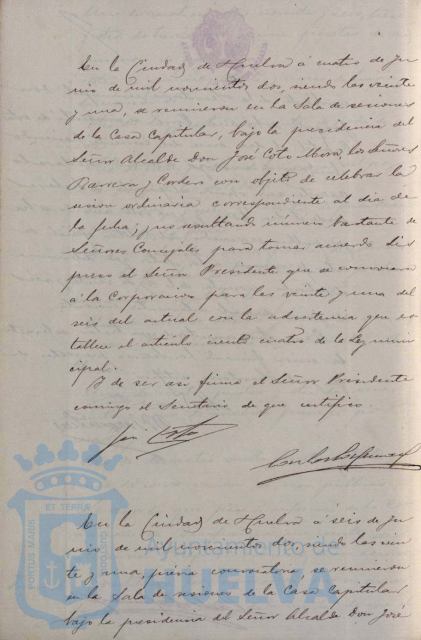 En la Ciudad de Huelva á cuatro de Ju
nio de mil novecientos dos, siendo las veinte
y una, se reunieron en la Sala de sesiones
de la Casa Capitular, bajo la presidencia del
Señor Alcalde Don José Coto Mora, los Señores
Barrera y Cordero con objeto de celebrar la
sesion ordinaria correspondiente al dia de
la fecha; y no resultando número bastante de
Señores Concejales para tomar acuerdo dis
puso el Señor Presidente que se convocara
á la Corporacion para las veinte y una del
seis del actual con la advertencia que es
tablece el articulo ciento cuatro de la Ley muni
cipal.
Y de ser asi firma el Señor Presidente
conmigo el Secretario de que certifico
José Coto
En la Ciudad de Huelva á seis de Ju
nio de mil novecientos dos, siendo las vein
te y una, previa convocatoria, se reunieron
en la Sala de sesiones de la Casa Capitular
bajo la presidencia del Señor Alcalde Don José
PORTUS MARIS
ET TERRÆ
CUSTODIA
Ayuntamiento de
HUELVA